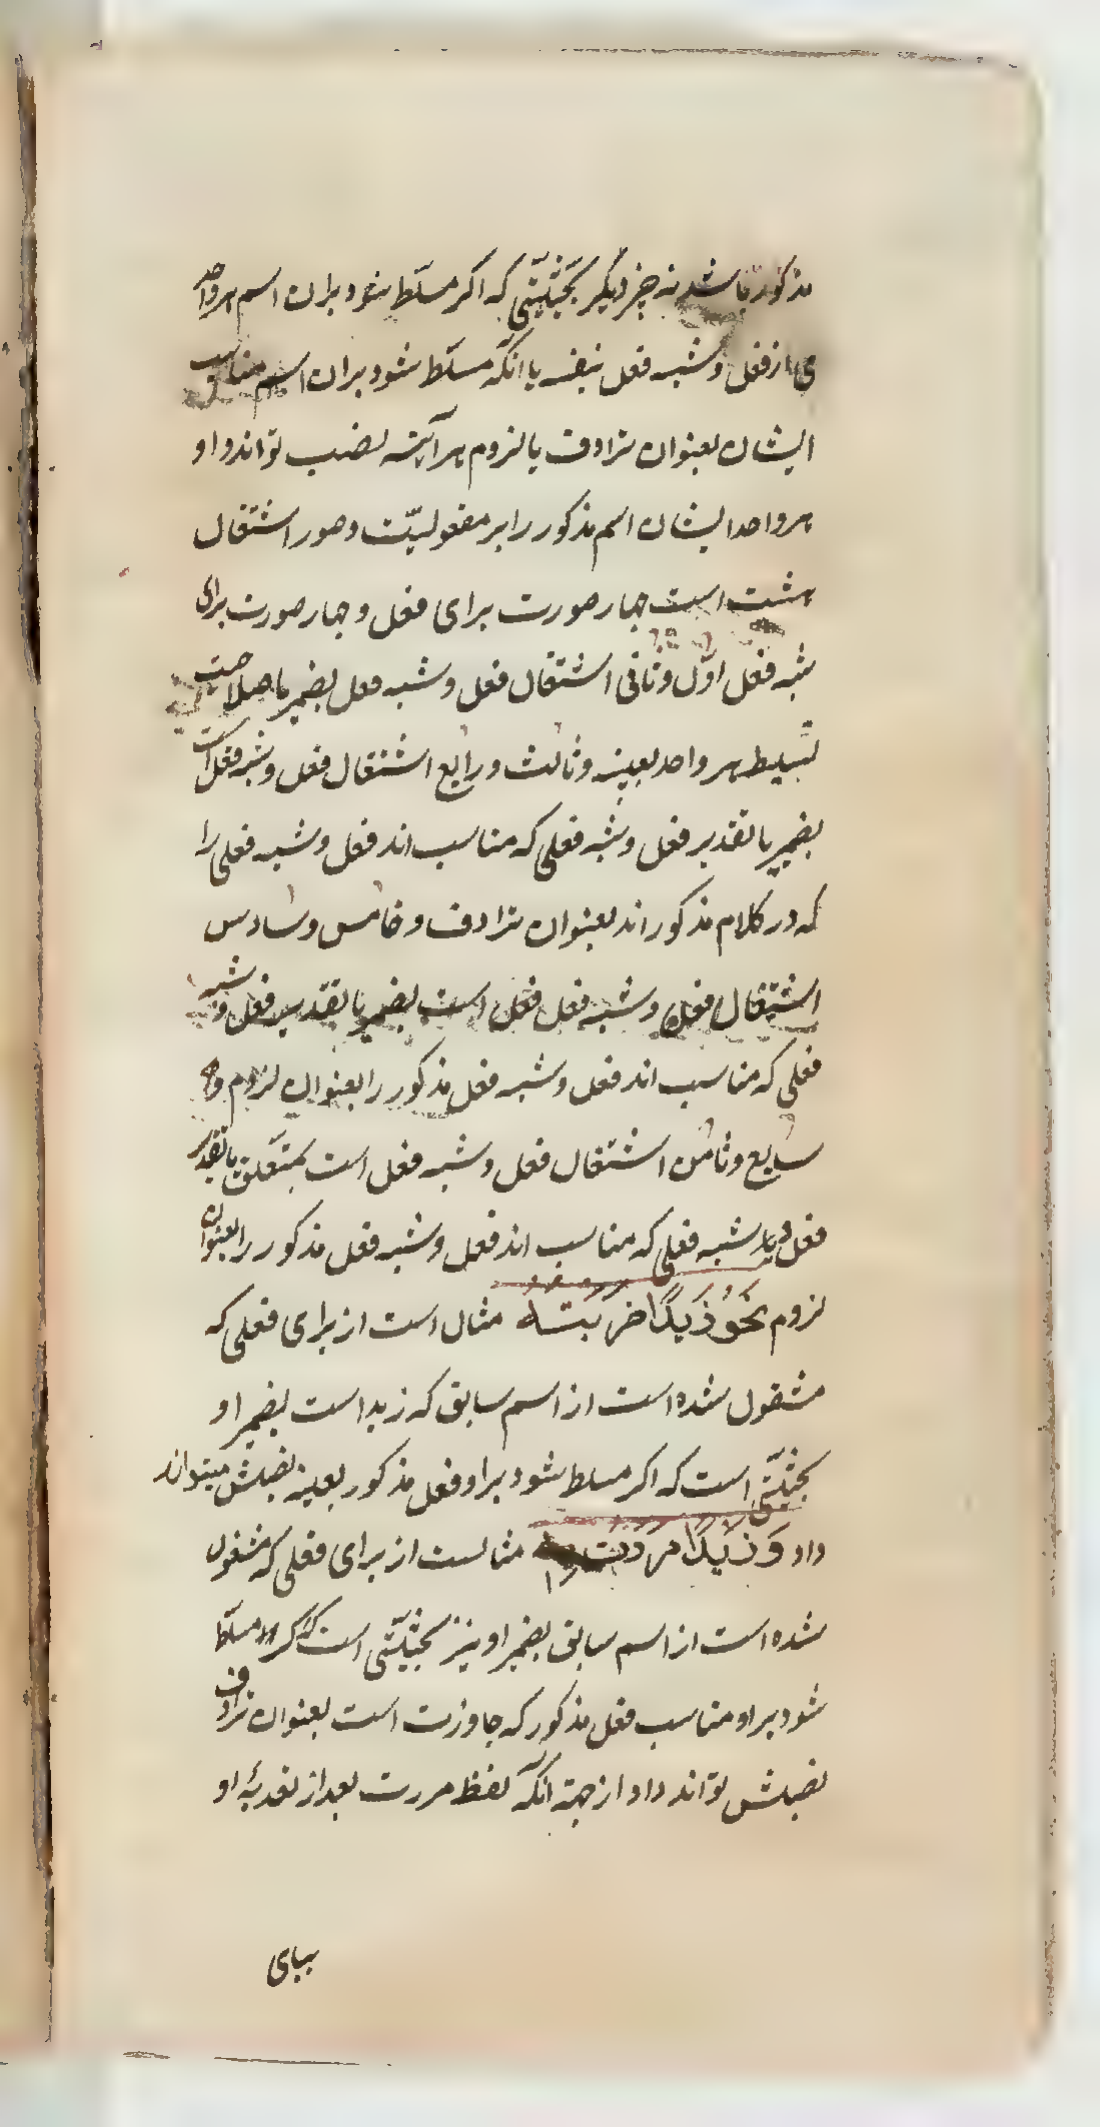 مذکور باشد نه چیز دیگر بحیثیّتی که اکر مسلّط شود بران اسم هر واحد
ی از فعل و شبه فعل بنفسه یا انکه مسلّط شود بران اسم مناسب
ایشان بعنوان ترادف یا لزوم هر آینه نصب تواند داد
هر واحد ایشان اسم مذکور را بر مفعولیّت و صور اشتغال
هشت است چهار صورت برای فعل و چهار صورت برای
شبه فعل اوّل و ثانی اشتغال فعل و شبه فعل بضمیر با صلاحیت
تسلیط هر واحد بعینه و ثالث و رابع اشتغال فعل و شبه فعل است
بضمیر با تقدیر فعل و شبه فعلی که مناسب اند فعل و شبه فعلی را
که در کلام مذکور اند بعنوان ترادف و خامس و سادس
اشتغال فعل و شبه فعل است بضمیر با تقدیر فعل و شبه
فعلی که مناسب اند فعل و شبه فعل مذکور را بعنوان لزوم و
سابع و ثامن اشتغال فعل و شبه فعل است بمتعلق با تقدیر
فعل و یا شبه فعلی که مناسب اند فعل و شبه فعل مذکور را بعنوان
لزوم نَحْوُ زَیْدًا ضَرَبْتُه مثال است از برای فعلی که
مشغول شده است از اسم سابق که زید است بضمیر او
بحیثیّتی است که اکر مسلط شود بر او فعل مذکور بعینه نصبش میتواند
داد وَ زَیْدًا مررت به مثالست از برای فعلی که مشغول
شده است از اسم سابق بضمیر او نیز بحیثیّتی است که اکر مسلّط
شود بر او مناسب فعل مذکور که جاوزت است بعنوان ترادف
نصبش تواند داد از جهة انکه لفظ مررت بعد از تعدیهٔ او
ببای